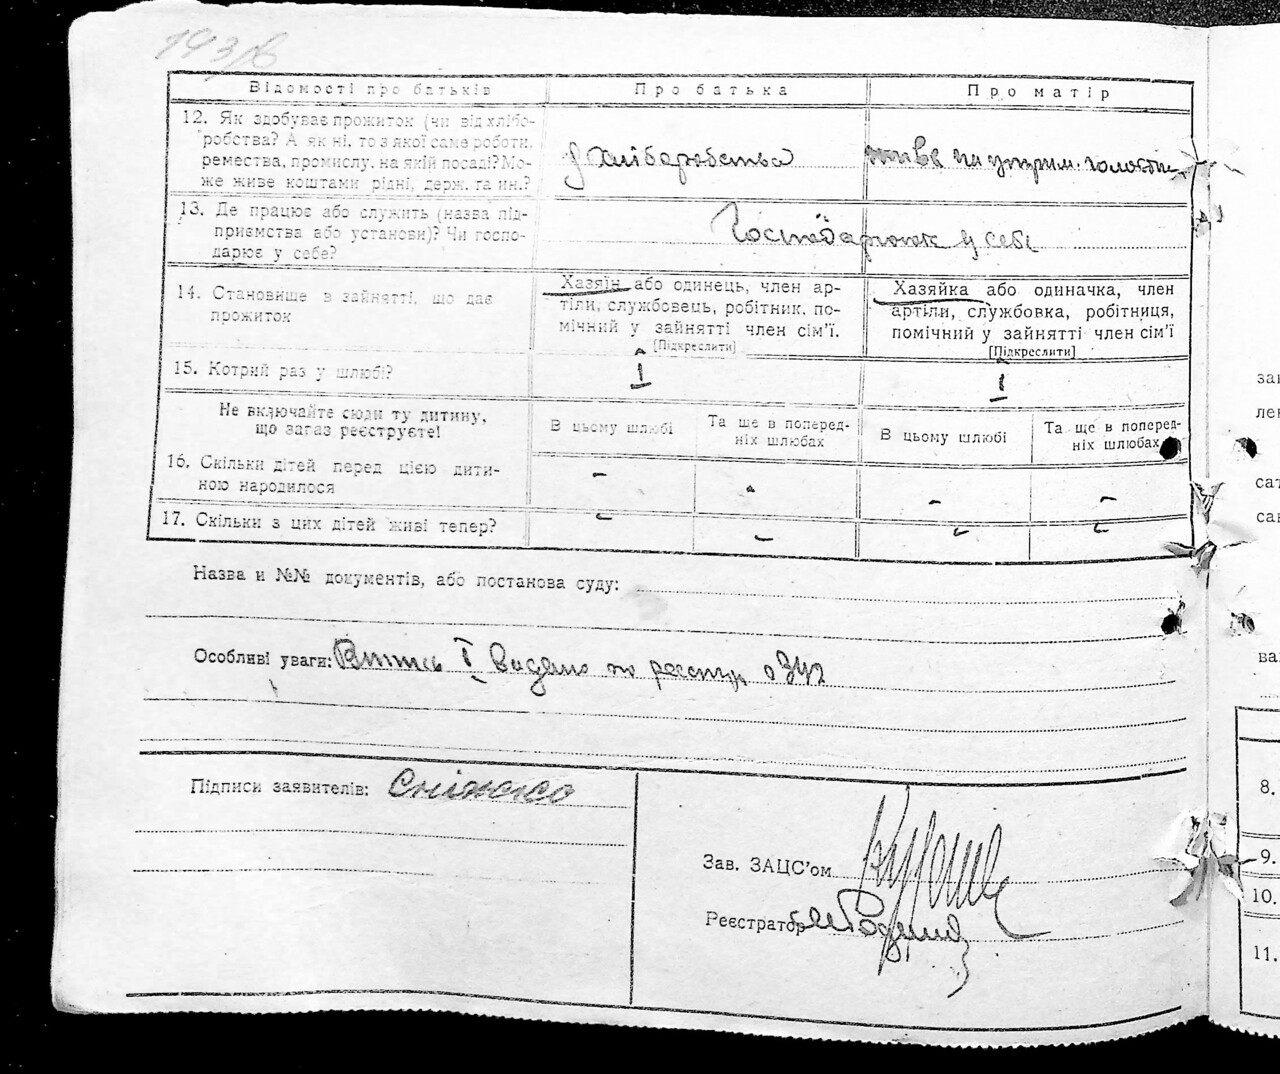 193
Відомості про батьків Про батька Про матір
12. Як здобуває прожиток (чи від хлібо-
робства? А як ні, то з якої саме роботи,
ремества, промислу, на якій посаді? Мо-
же живе коштами рідні, держ. та ин.?
з хліборобства
на утрим.
13. Де працює або служить (назва під-
приємства або установи)? Чи госпо-
дарює у себе?
Господарюють у себе
14. Становище в зайнятті, що дає
прожиток
Хазяїн або одинець, член ар-
тіли, службовець, робітник, по-
мічний у зайнятті член сім’ї.
[Підкреслити]
Хазяйка або одиначка, член
артіли, службовка, робітниця,
помічний у зайнятті член сім’ї
[Підкреслити]
15. Котрий раз у шлюбі? I I
Не включайте сюди ту дитину,
що зараз реєструєте!
В цьому шлюбі
Та ще в поперед-
ніх шлюбах
В цьому шлюбі
Та ще в поперед-
ніх шлюбах
16. Скільки дітей перед цією дити-
ною народилося
- - - -
17. Скільки з цих дітей живі тепер? - - - -
Назва и №№ документів, або постанова суду:
Особливі уваги: Витись I видано по реєстру
Підписи заявителів: Сніжко
Зав. ЗАЦС’ом
Реєстратор
зак
лен
сат
сан
ва
8.
9.
10.
11.